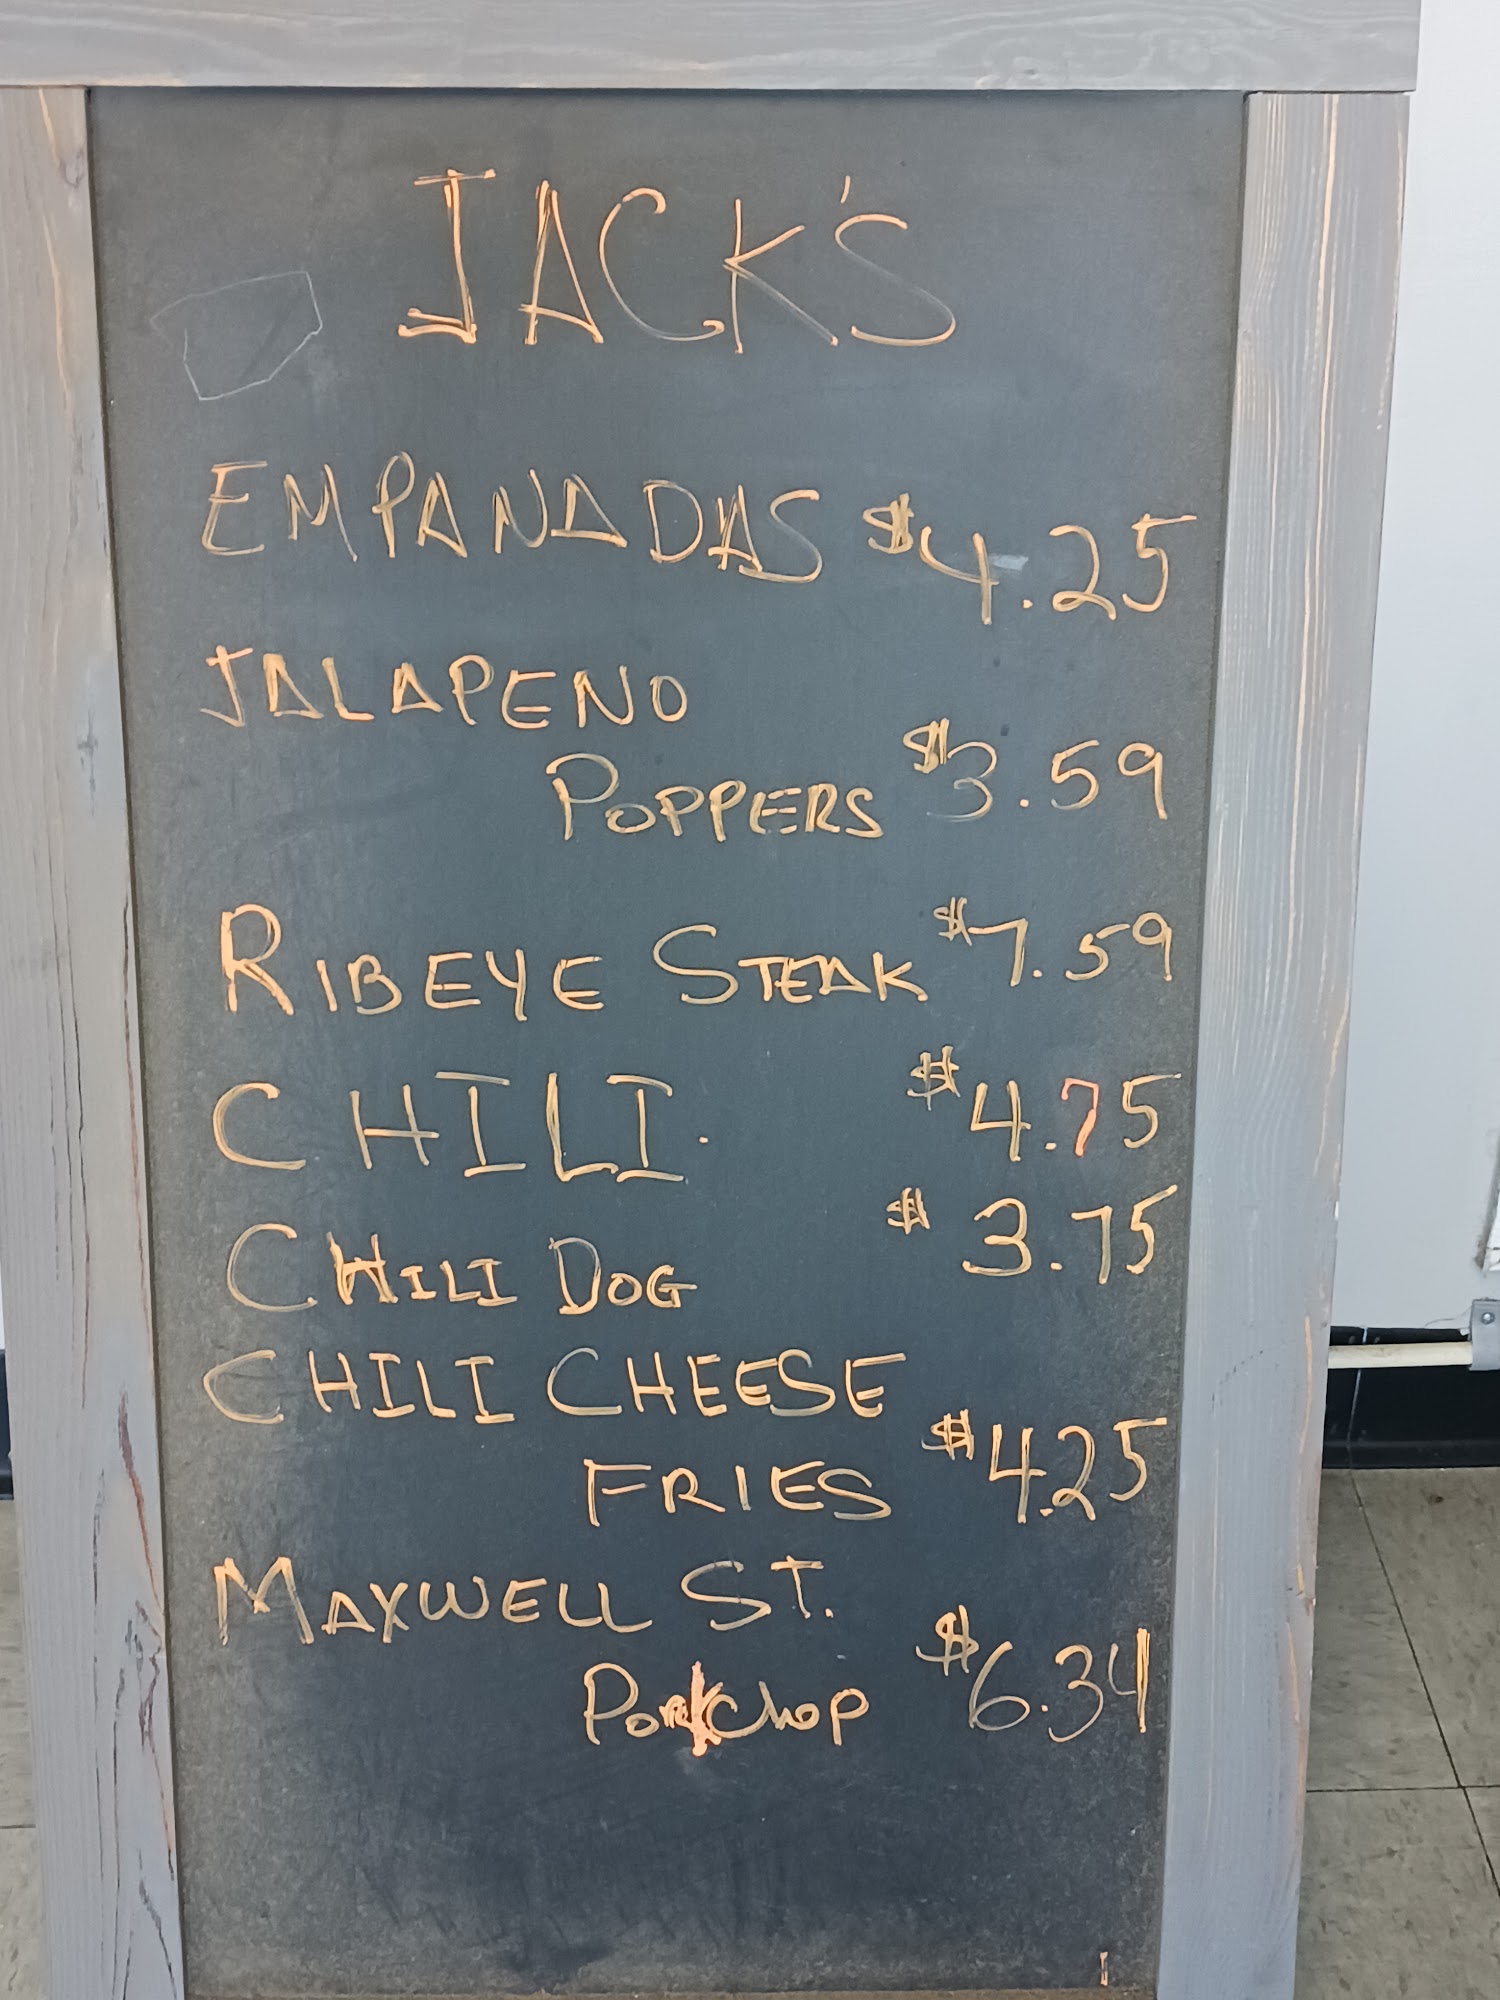 JACK'S
EMPANADAS $4.25
JALAPENO
POPPERS $3.59
RIBEYE STEAK $7.59
CHILI. $4.75
CHILI DOG $3.75
CHILI CHEESE
FRIES $4.25
MAXWELL ST.
PORKChop $6.34